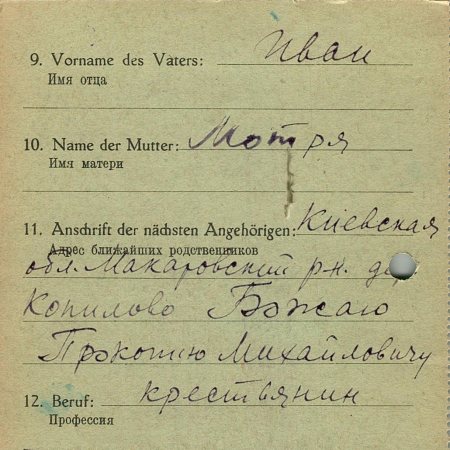 9. Vorname des Vaters: Иван
Имя отца
10. Name der Mutter: Мотря
Имя матери
11. Anschrift der nächsten Angehörigen: Киевская
Адрес ближайших родственников
обл. Макаровский р-н. дер
Копилово Божаю
Прокопию Михайловичу
12. Beruf: крестьянин
Профессия